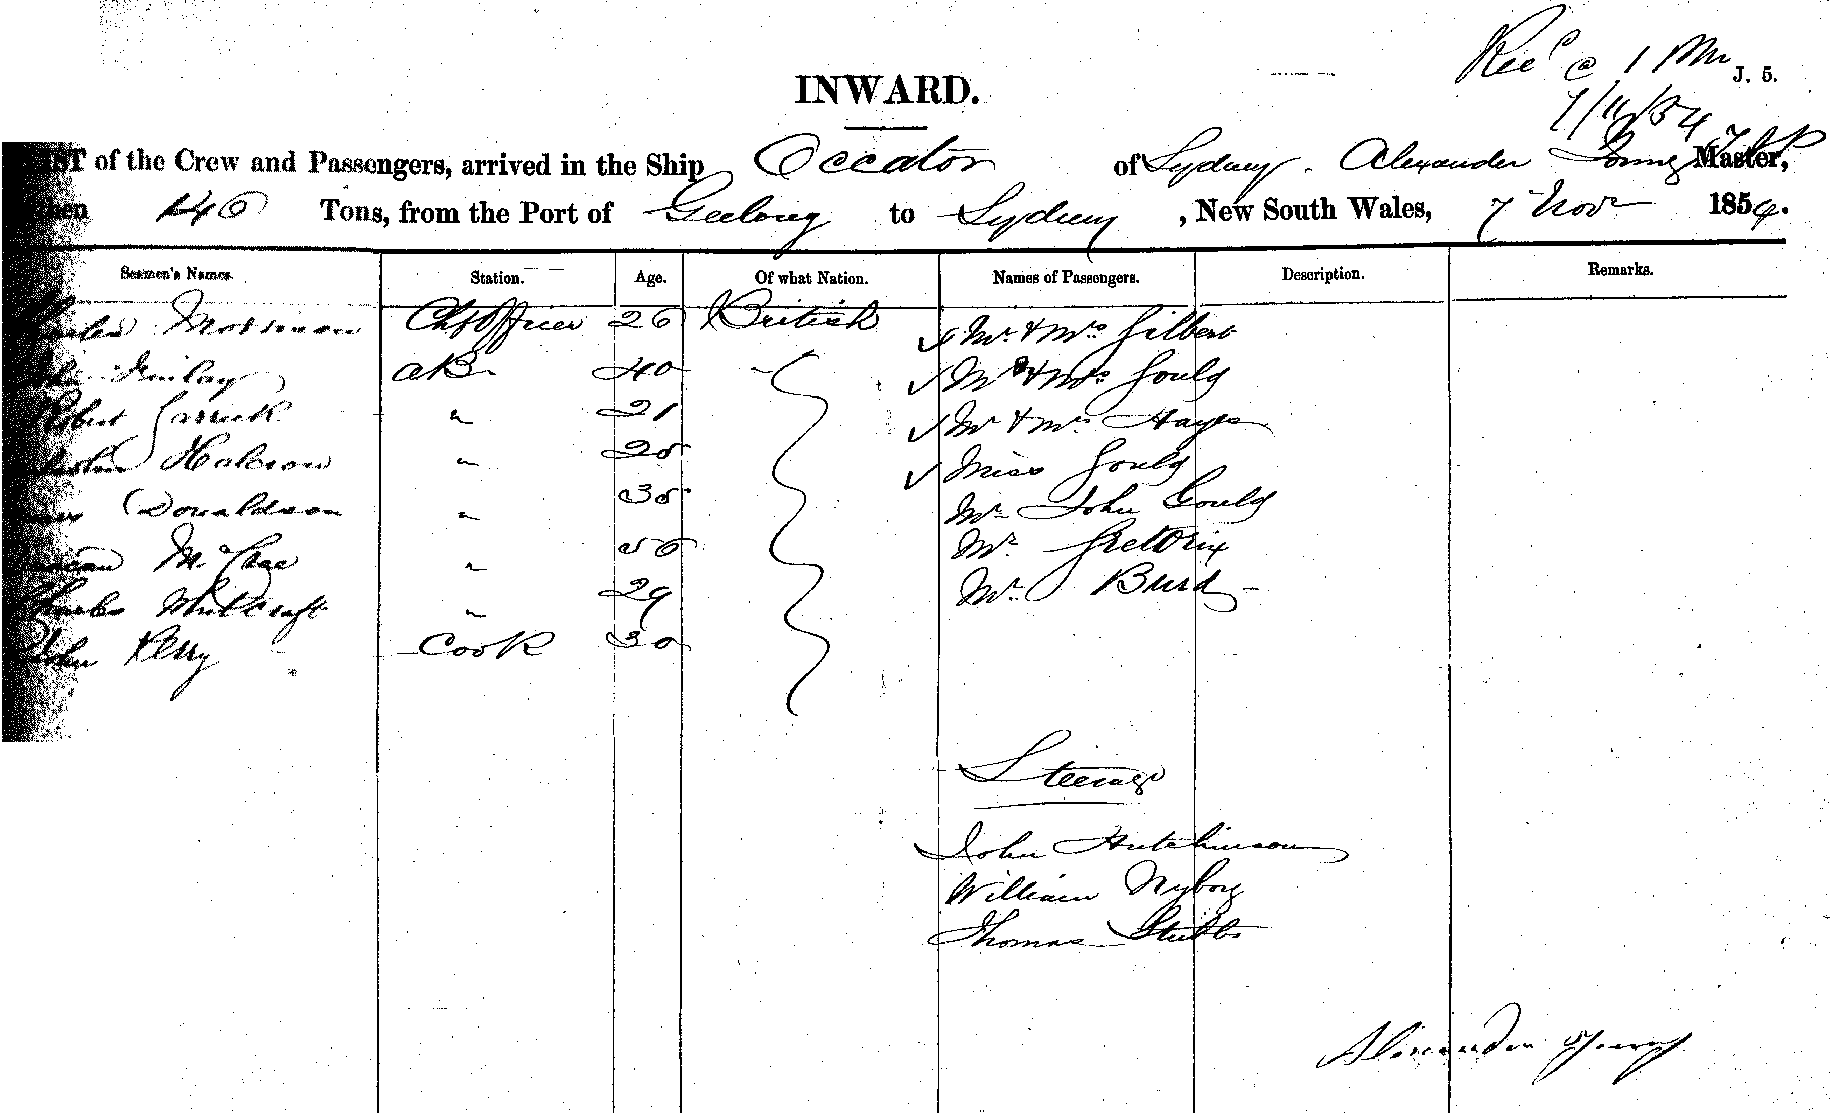 Recd @ 1 Pm J. 5.
7/11/54
INWARD.
LIST of the Crew and Passengers, arrived in the Ship Occator of Sydney. Alexander Master,
Tons, from the Port of Geelong to Sydney, New South Wales, 7 Novr 1854.
Seamen's Names. Station. Age. Of what Nation. Names of Passengers. Description. Remarks.
Morrison Chf Officer 26 British Mr & Mrs Gilbert
Finlay AB 40 Mr & Mrs Gould
Robert Garrick " 21 Mr & Mrs Hayes
John Halcrow " 25 Miss Gould
Donaldson " 35 Mr John Gould
Duncan McCrae " 56 Mr
Charles Whitcraft " 29 Mr Burd
John Perry Cook 30
Steerage
John Hutchinson
William Nyborg
Thomas Stubbs
Alexander